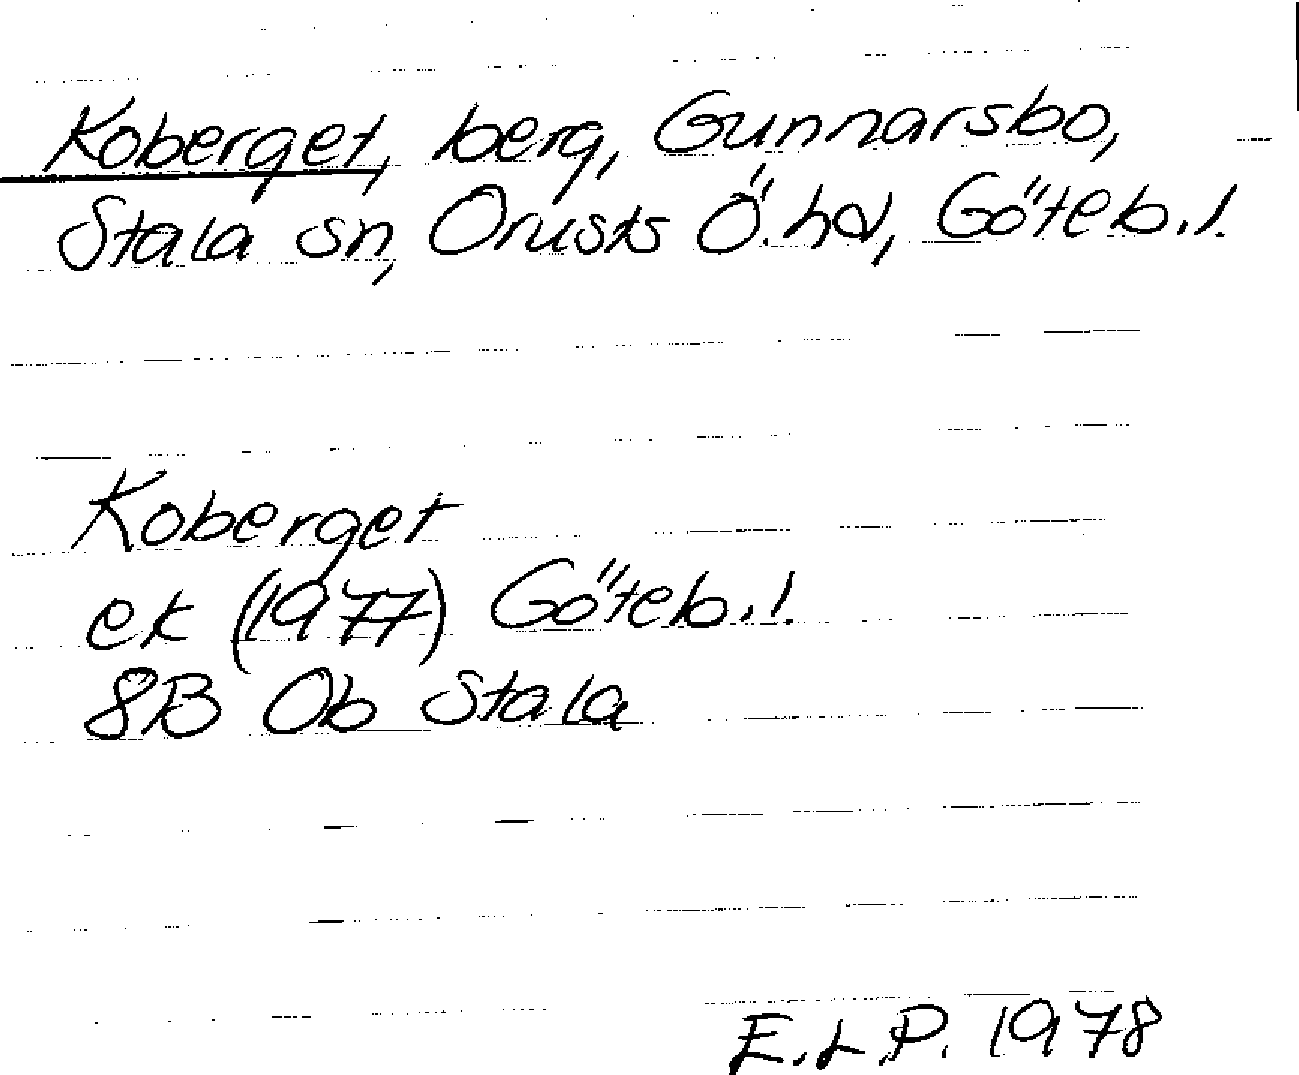 Koberget, berg, Gunnarsbo,
Stala sn, Orusts Ö. hd, Göteb. l.
Koberget
ek (1977) Göteb. l.
8B 0b Stala
E.L.P. 1978